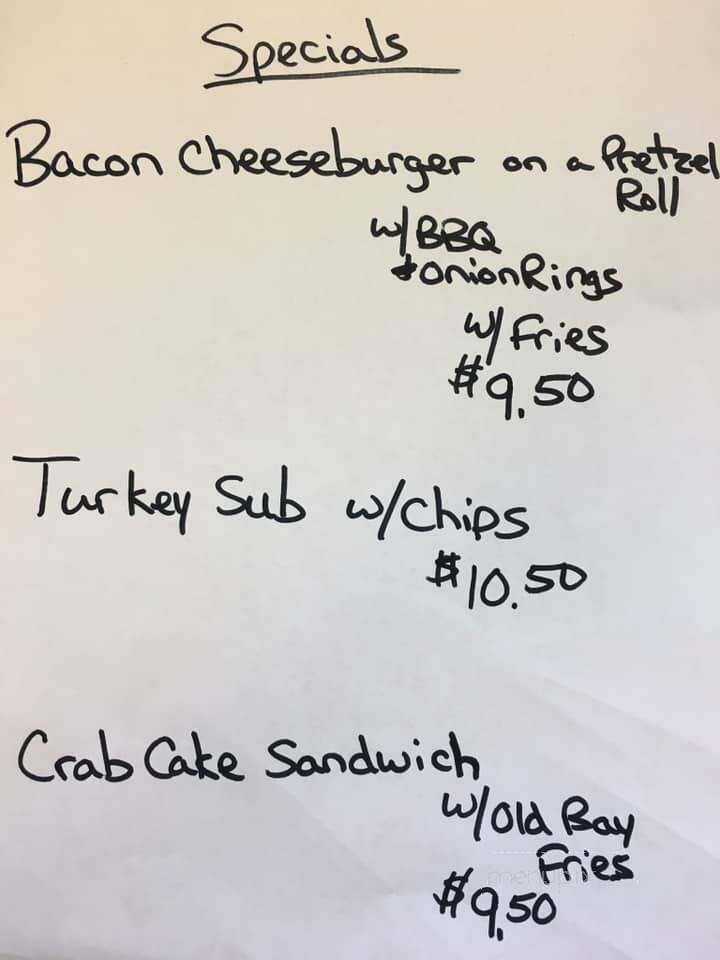 Specials
Bacon Cheeseburger on a Pretzel
Roll
w/BBQ
& onion Rings
w/ Fries
$9.50
Turkey Sub w/chips
$10.50
Crab Cake Sandwich
w/Old Bay
Fries
$9.50